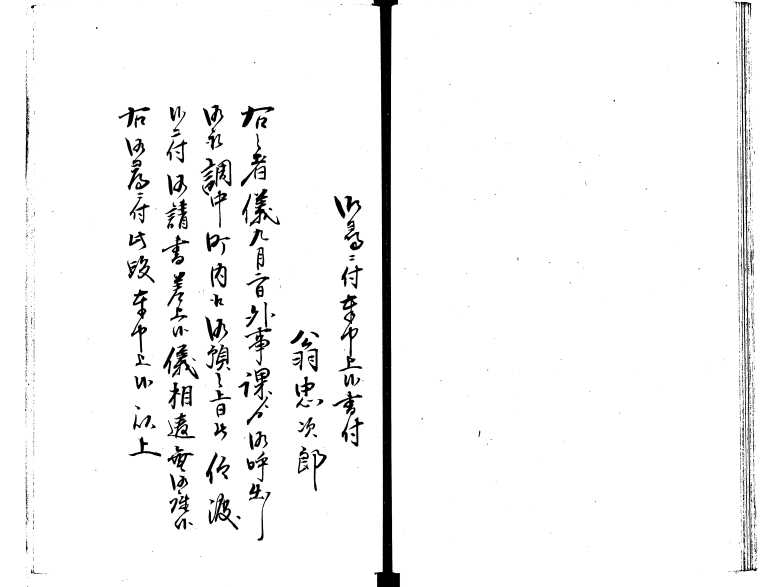 御尋ニ付奉申上候書付
翁忠次郎
右之者儀九月二日外事課ゟ御呼出し
御取調中町内江御預之上日々伺渡
候ニ付御請書差上候儀相違無御座候
右御尋ニ付此段奉申上候以上